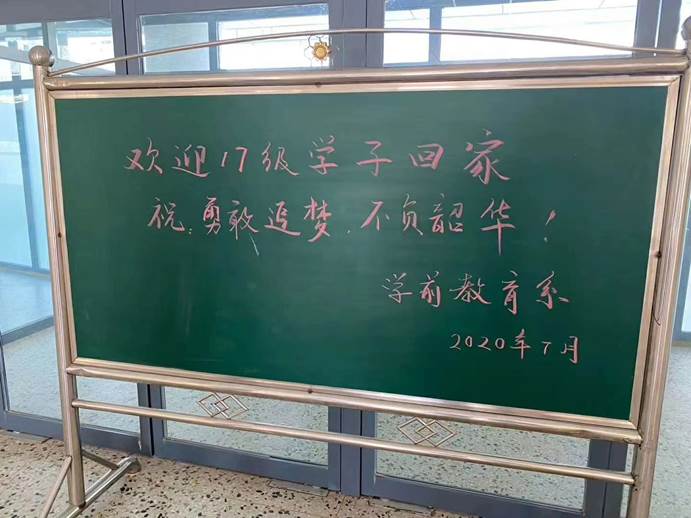 欢迎17级学子回家
祝:勇敢追梦,不负韶华!
学前教育系
2020年7月